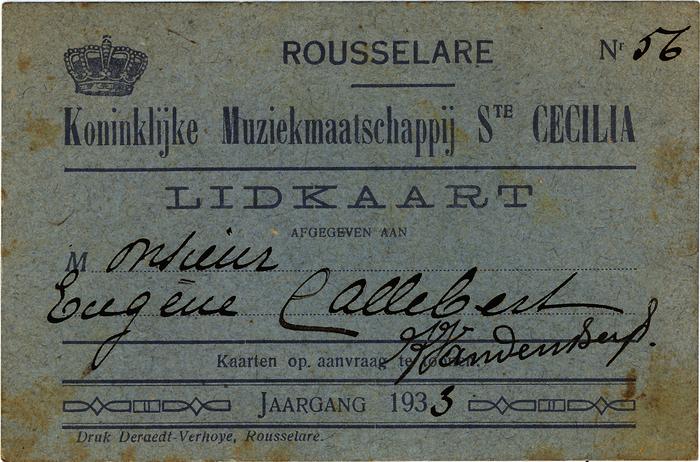 ROUSSELARE
Nr 56
Koninklijke Muziekmaatschappij STE CECILIA
LIDKAART
AFGEGEVEN AAN
Monsieur
Eugène Callebert
Kaarten op aanvraag te toonen.
JAARGANG 1933
Druk Deraedt-Verhoye, Rousselare.